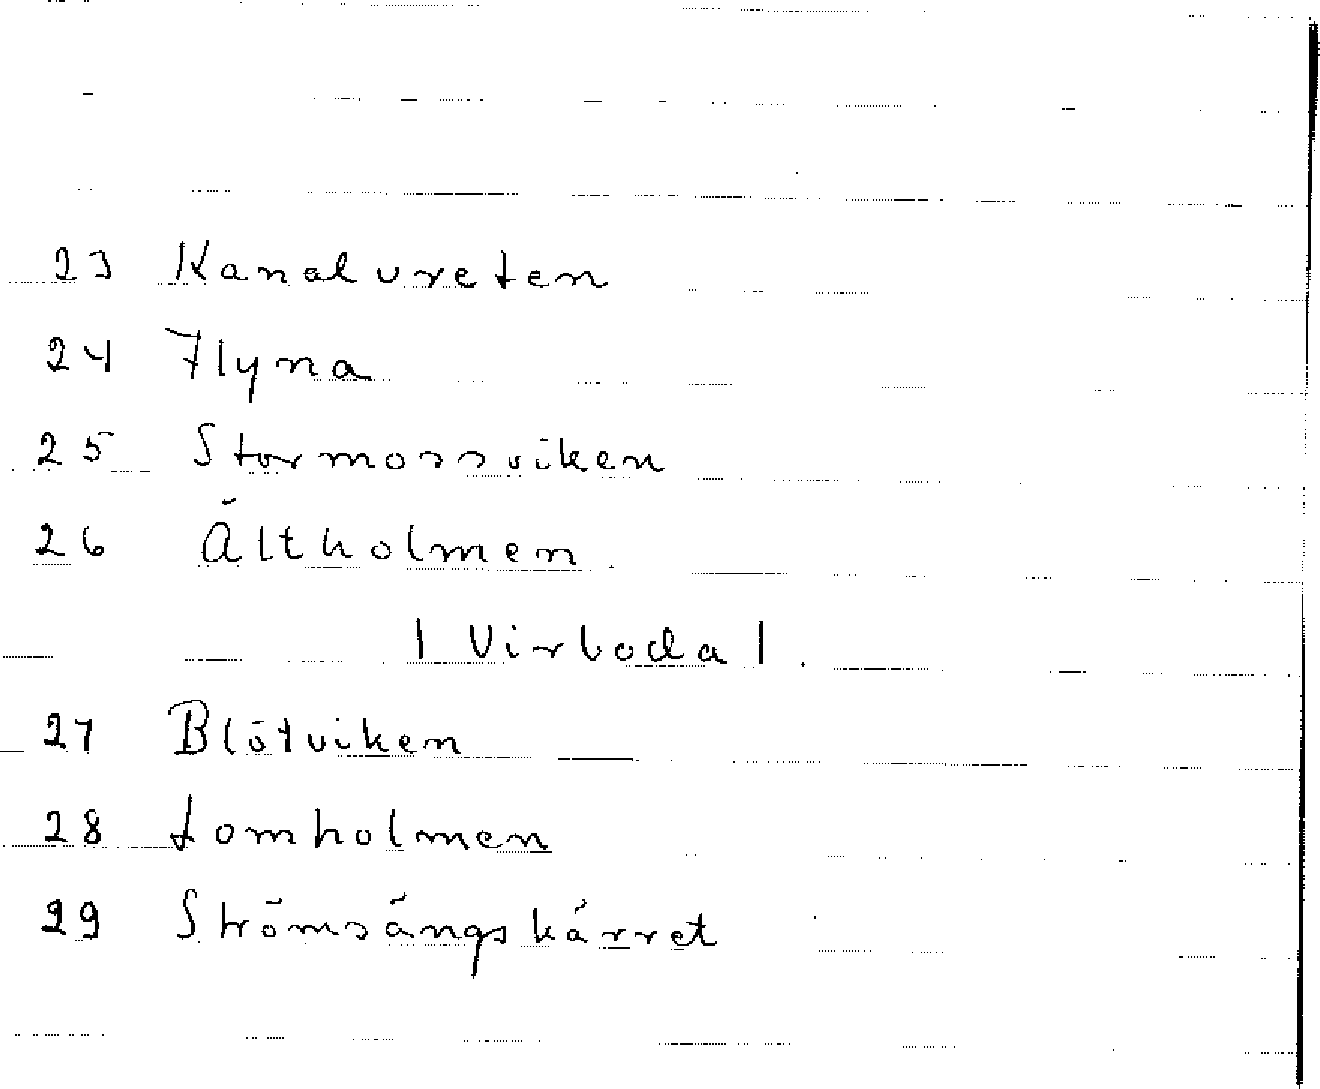 23 Kanalvreten
24 Flyna
25 Stormossviken
26 Ältholmen
| Virboda |.
27 Blötviken
28 Lomholmen
29 Strömsängskärret